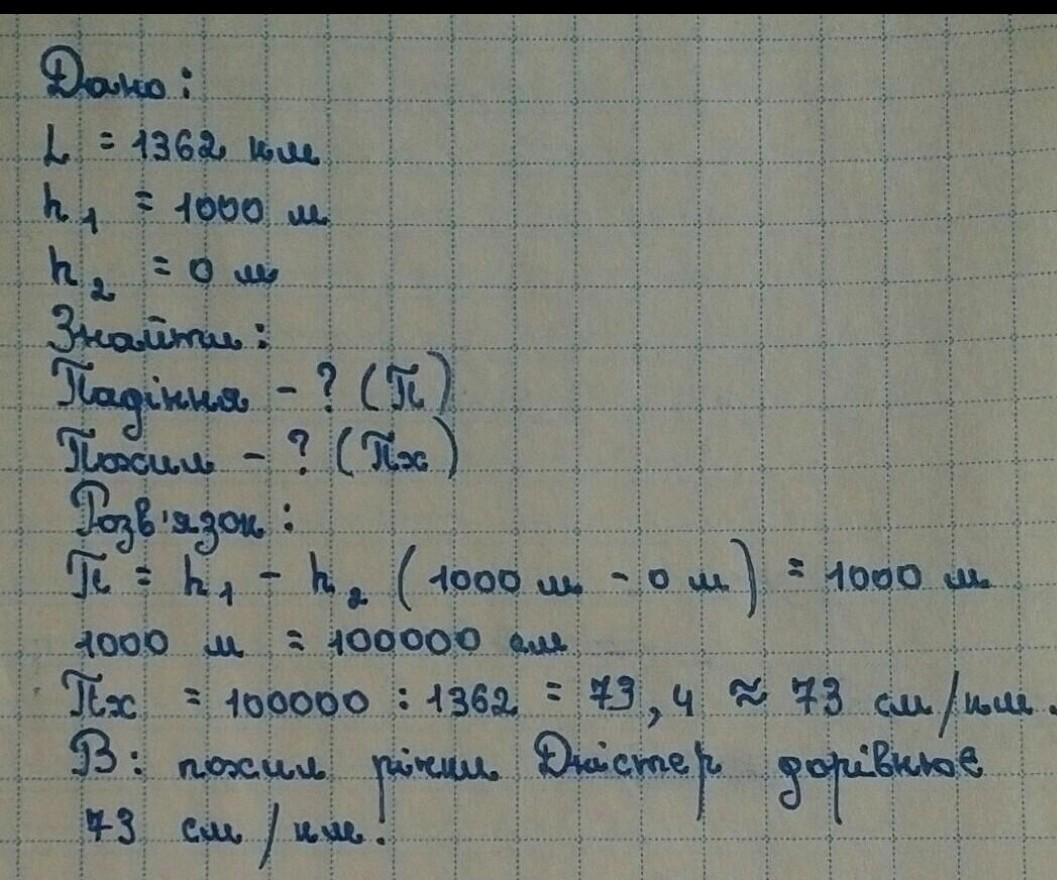 Дано:
L = 1362 км
h₁ = 1000 м
h₂ = 0 м
Знайти:
Падіння - ? (П)
Похил - ? (Пх)
Розв'язок:
П = h₁ - h₂ (1000 м - 0 м) = 1000 м
1000 м = 100000 см
Пх = 100000 : 1362 = 73,4 ≈ 73 см/км.
В: похил річки Дністер дорівнює
73 см/км.